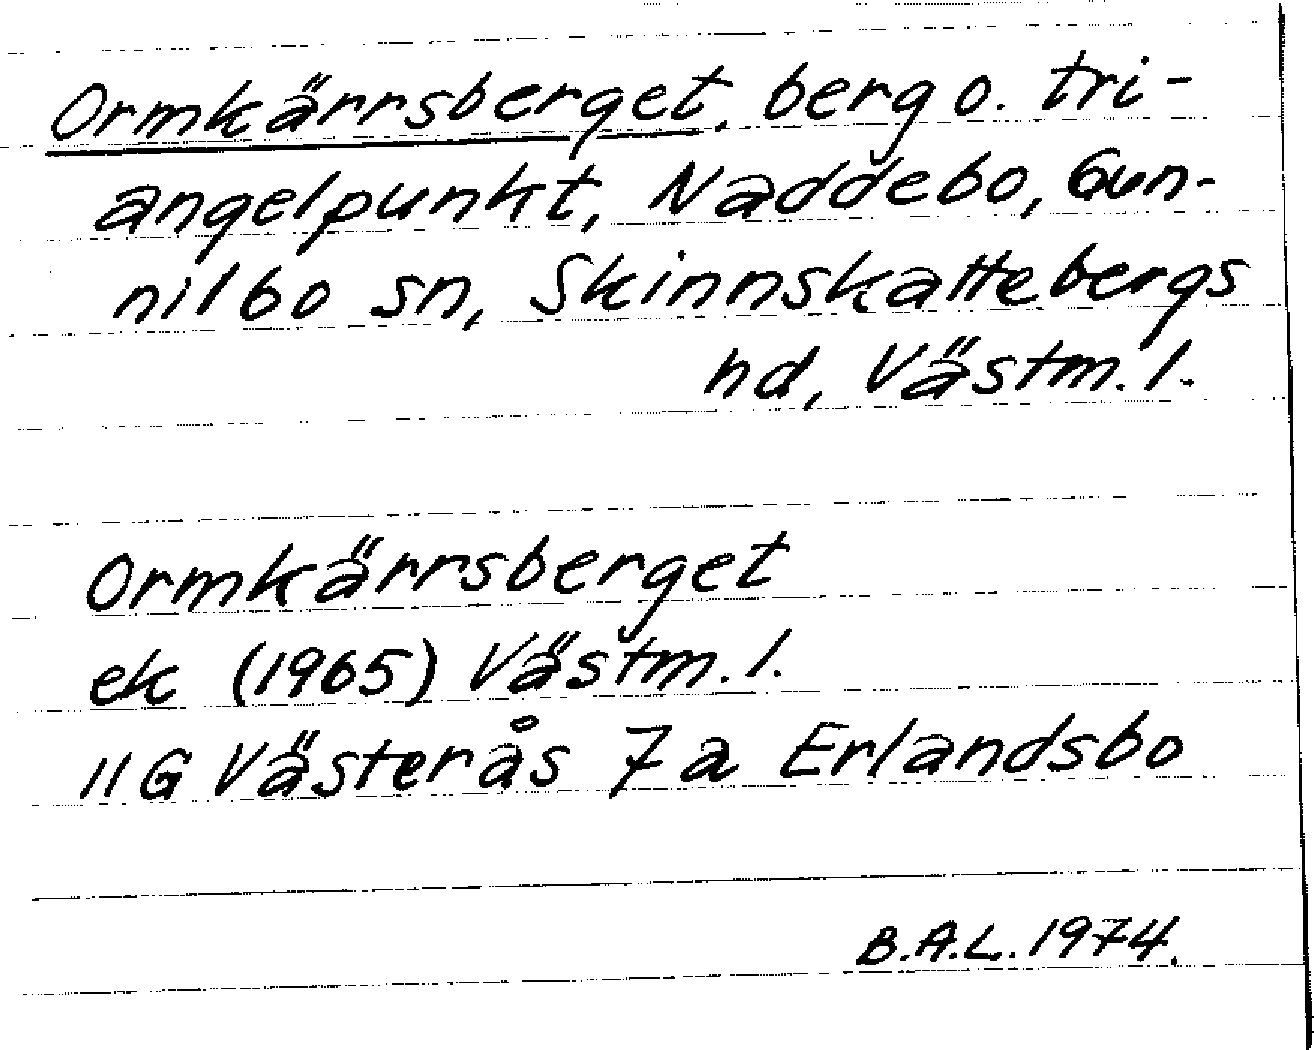 Ormkärrsberget, berg o. tri-
angelpunkt, Naddebo, Gun-
nilbo sn, Skinnskattebergs
hd, Västm. l.
Ormkärrsberget
ek (1965) Västm. l.
11G Västerås 7a Erlandsbo
B.A.L. 1974.